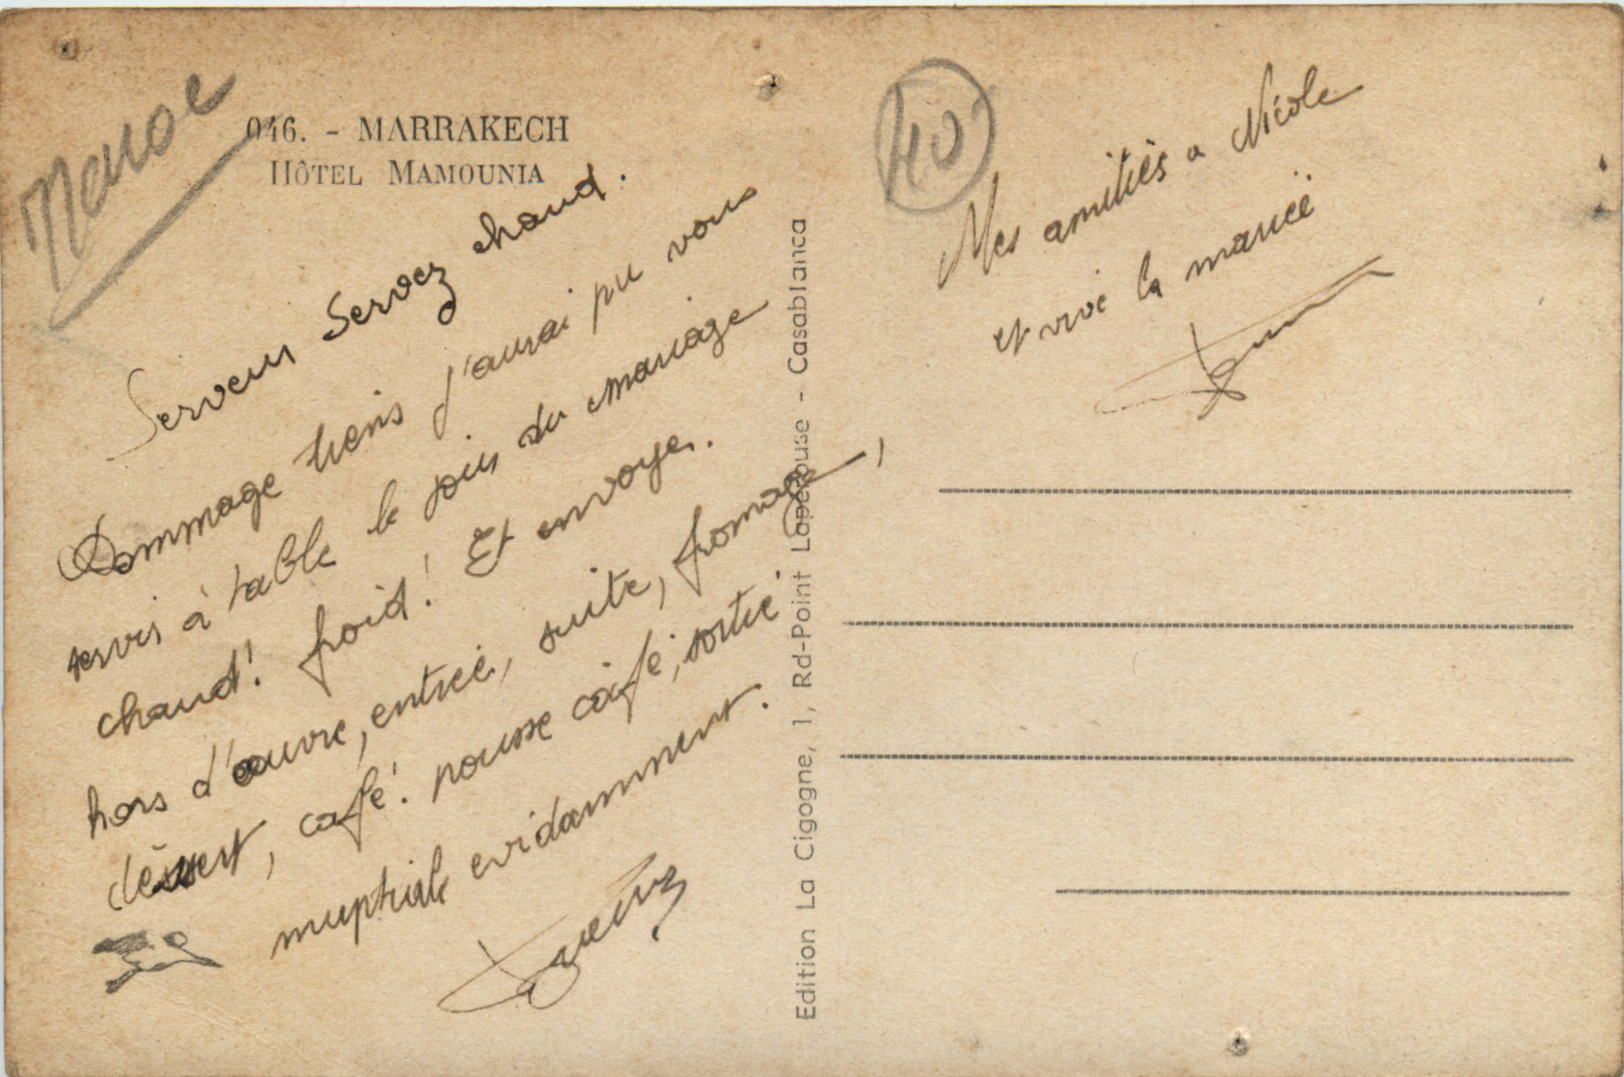 Maroc
046. - MARRAKECH
HÔTEL MAMOUNIA
Serveur Servez chaud.
Dommage tiens j'aurai pu vous
servir à table le jour du mariage
chaud! froid! Et envoyer.
hors d'œuvre, entrée, suite, fromage,
dessert, café. pousse café, sortie.
nuptiale evidamment.
Edition La Cigogne, 1, Rd-Point Laperouse - Casablanca
40
Mes amitiés a Nicole
et vive la mariée